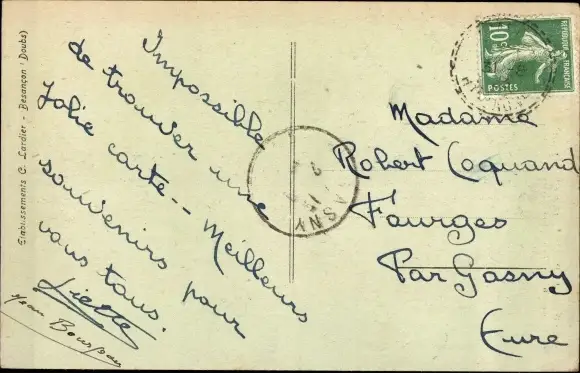 Etablissements C. Lardier - Besançon (Doubs)
Impossible
de trouver une
jolie carte -- Meilleurs
souvenirs pour
vous tous.
Liette
Jean
10c
REPUBLIQUE FRANÇAISE
POSTES
GASNY
Madame
Robert Coquand
Fourges
Par Gasny
Eure